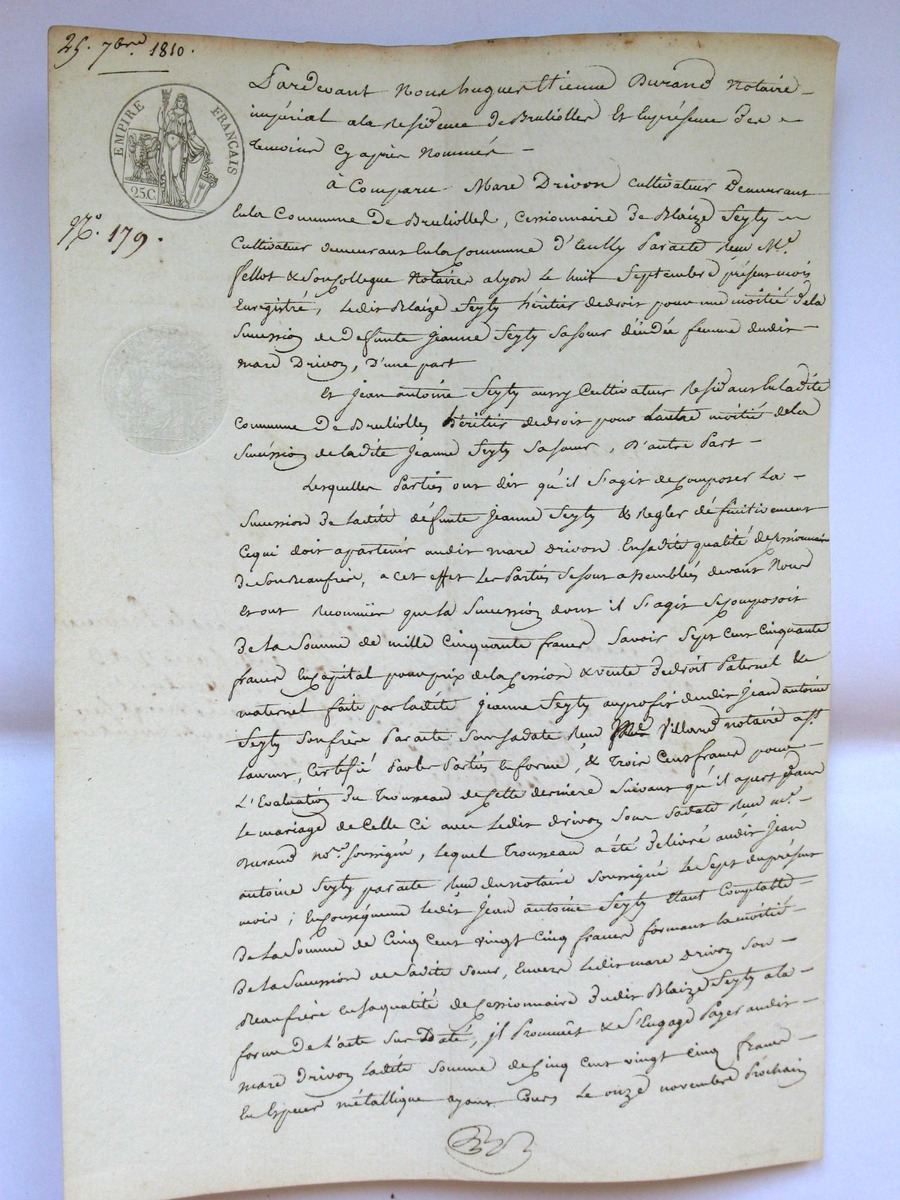 25. 7bre 1810.
EMPIRE FRANÇAIS
25.C
N.º 179.
Pardevant Nous hugues Etienne Durand Notaire
impérial ala Residence de Brullolles Et En présence des
temoins Cy après Nommés
à Comparu Marc Drivon Cultivateur Demeurant
En la Commune De Brullolles, Cessionnaire De Blaize Seyty
Cultivateur demeurant En la Commune d'Ecully Par acte reçu Me
fellot & Son Collegue Notaires a lyon Le huit Septembre présent mois
Enregistré, Ledit Blaize Seyty héritier dedroit pour une moitié Dela
Succession de defunte Jeanne Seyty Sa Sœur décédée femme dudit
marc Drivon, D'une part
Et Jean antoine Seyty aussy Cultivateur Residant En ladite
Commune De Brullolles héritier dedroit pour Lautre moitié dela
Succession de ladite Jeanne Seyty Sa Sœur, D'autre Part
Lesquelles Parties ont dit qu'il S'agit de Composer La
Succession De ladite défunte Jeanne Seyty & Regler définitivement
Cequi doit apartenir audit marc drivon En sadite qualité de Cessionnaire
De Son Beaufrère, a cet effet Les Parties Se sont assemblées devant Nous
Et ont Reconnües que la Succession dont il S'agit Se Composoit
De La Somme de mille Cinquante francs Savoir Sept Cent Cinquante
francs En Capital pour prix de la Cession & vente du droit Paternel &
maternel faite par ladite Jeanne Seyty au profit dudit Jean antoine
Seyty Son frère Par acte Sous Sa date reçu Me Villard notaire a St
Laurent, Certifié Par les Parties En forme, & Trois Cent francs pour
L'Evaluation du Trousseau de Cette dernière Suivant qu'il apert Dans
Le mariage de Celle Ci avec Ledit drivon Sous Sa date reçu Me
Durand nre soussigné, Lequel Trousseau a été delivré audit Jean
antoine Seyty par acte reçu du notaire Soussigné Le Sept du présent
mois; En Conséquence Ledit Jean antoine Seyty Etant Comptable
De La Somme de Cinq Cent vingt Cinq francs formant la moitié
De la Succession de Sadite Sœur, Envers Ledit marc Drivon Son
Beaufrère En Sa qualité de Cessionnaire dudit Blaize Seyty a la
forme de l'acte Sus Daté, il Promet & S'Engage Payer audit
marc Drivon Ladite Somme de Cinq Cent vingt Cinq francs
En Espèces métallique ayant Cours Le onze novembre Prochain